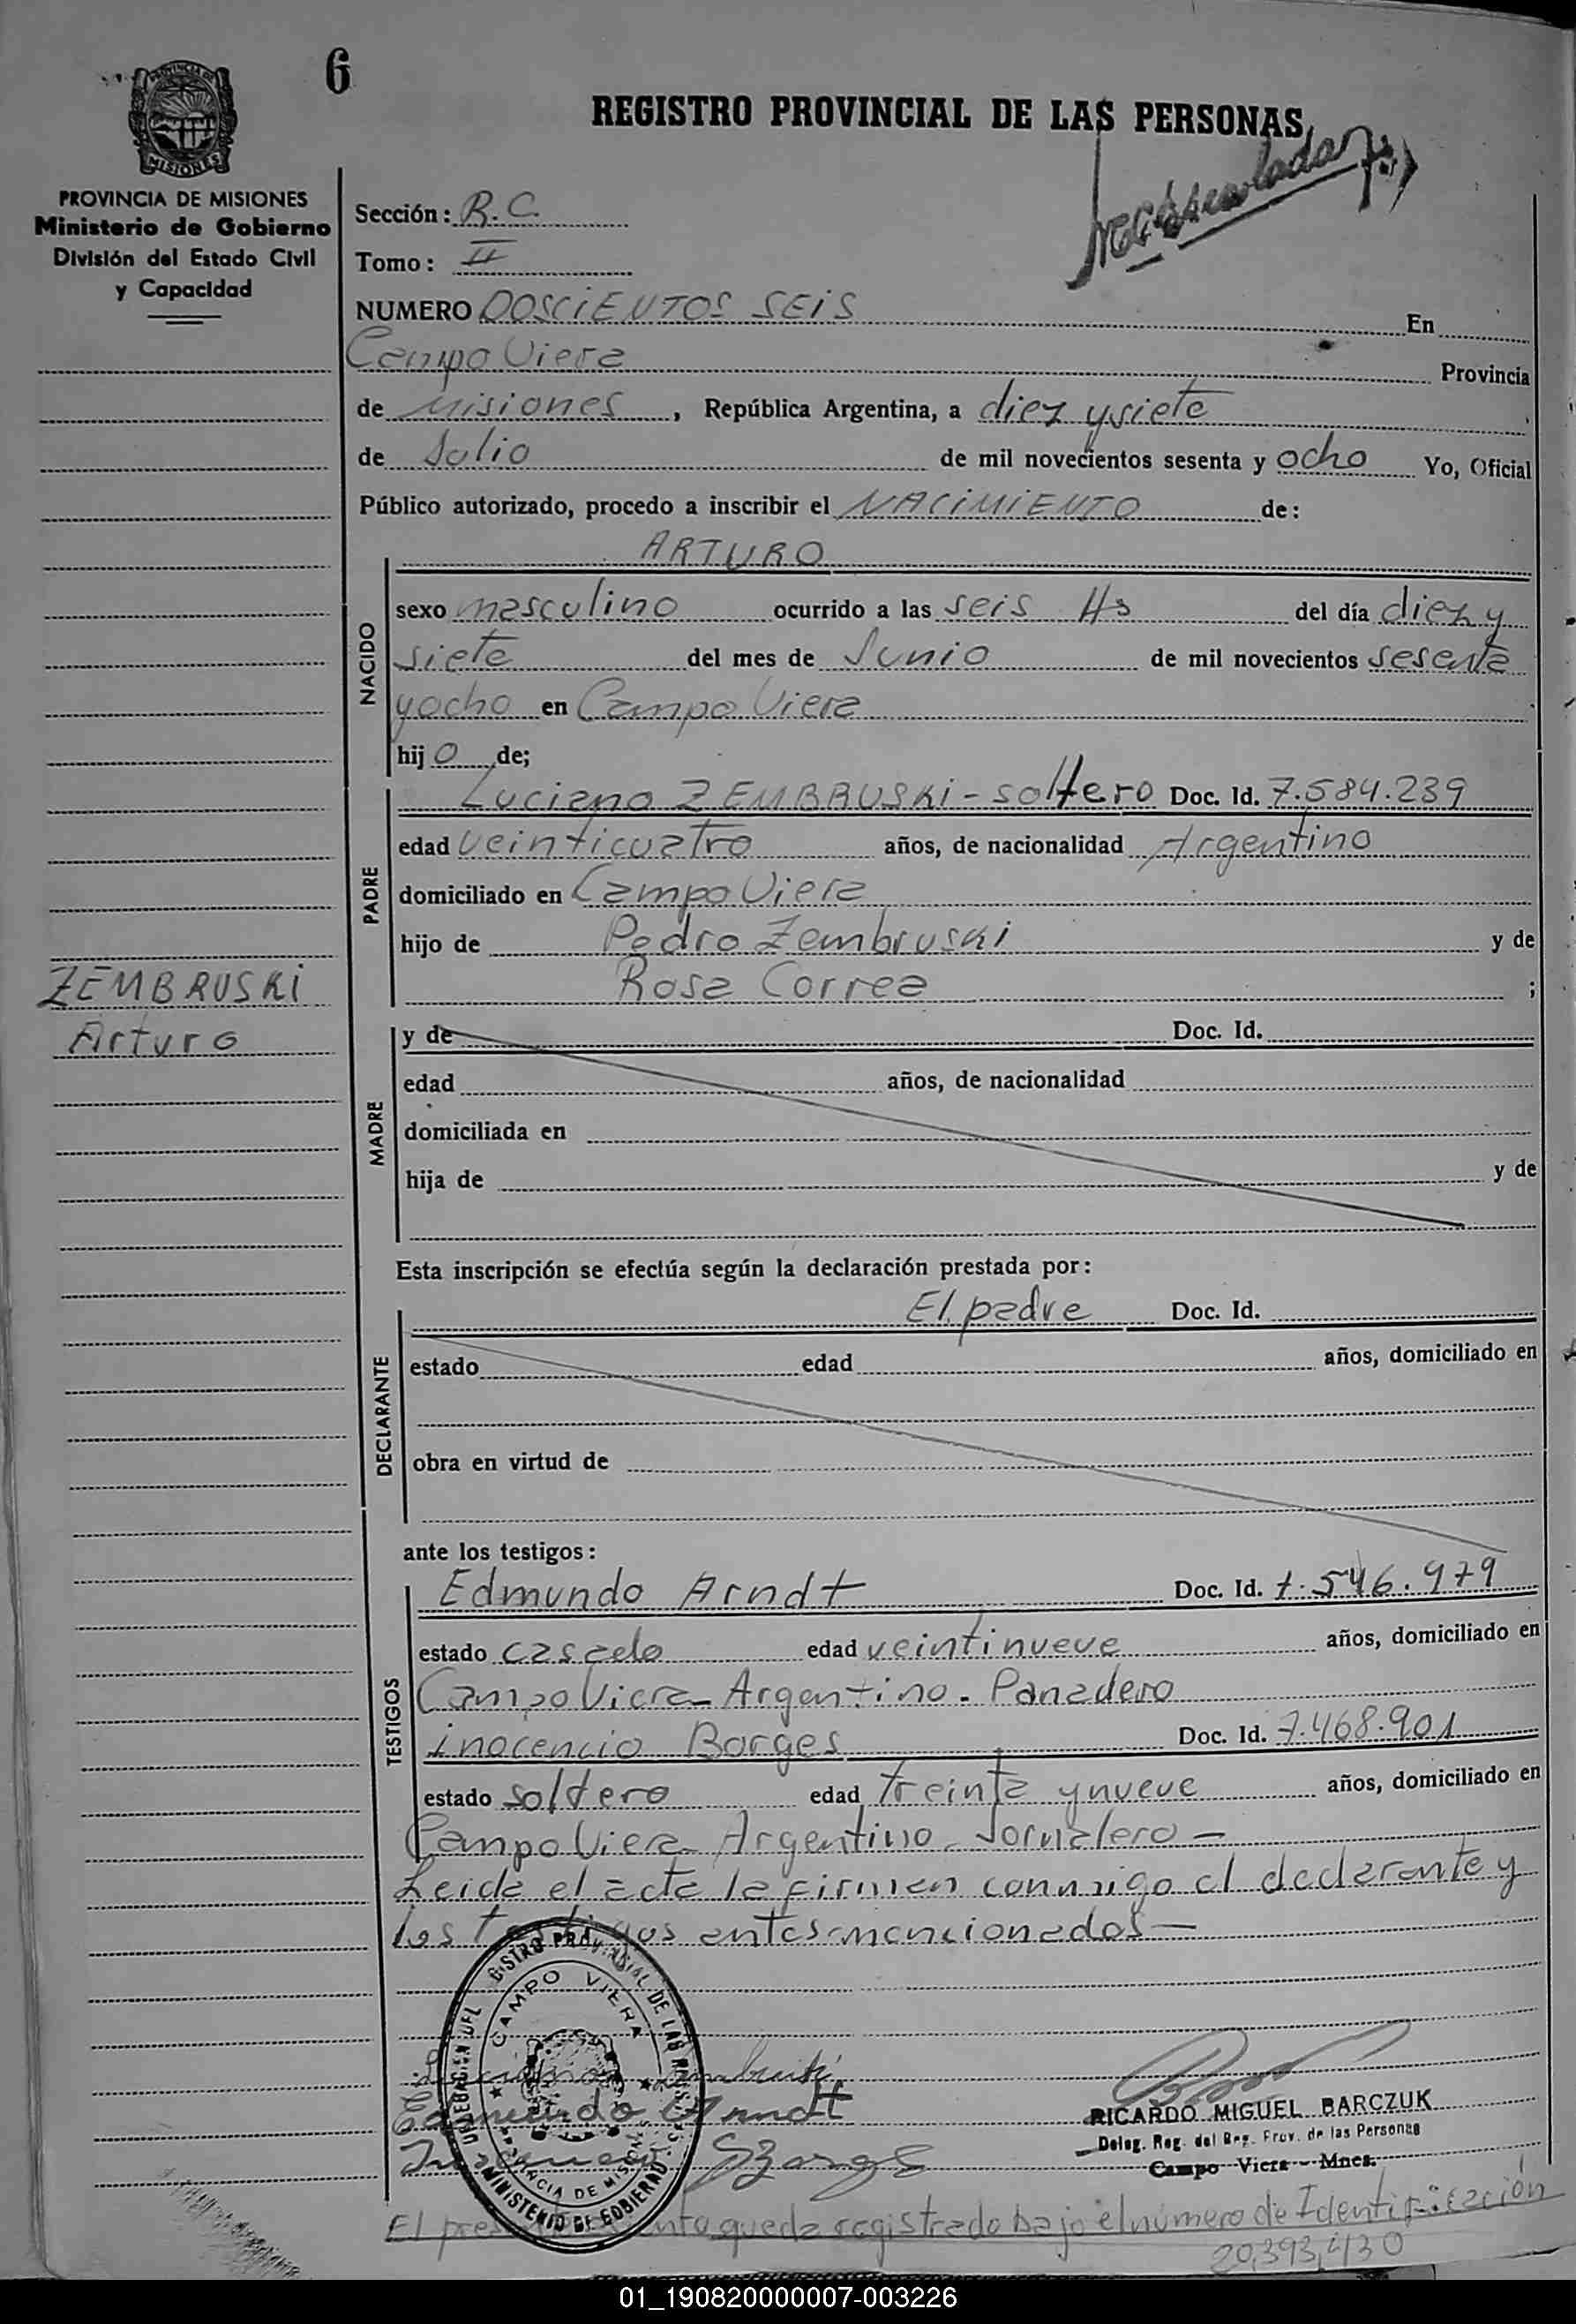 6
REGISTRO PROVINCIAL DE LAS PERSONAS
MISIONES
PROVINCIA DE MISIONES
Ministerio de Gobierno
División del Estado Civil
y Capacidad
Sección: R.C.
Tomo: II
NUMERO DOSCIENTOS SEIS En
Campo Viera Provincia
de Misiones, República Argentina, a diez y siete
de Julio de mil novecientos sesenta y ocho Yo, Oficial
Público autorizado, procedo a inscribir el NACIMIENTO de:
ARTURO
NACIDO
sexo masculino ocurrido a las seis Hs del día diez y
siete del mes de Junio de mil novecientos sesenta
y ocho en Campo Viera
hijo de;
PADRE
Luciano ZEMBRUSKI - soltero Doc. Id. 7.584.239
edad veinticuatro años, de nacionalidad Argentino
domiciliado en Campo Viera
hijo de Pedro Zembruski y de
Rosa Correa ;
ZEMBRUSKI
Arturo
MADRE
y de Doc. Id.
edad años, de nacionalidad
domiciliada en
hija de y de
Esta inscripción se efectúa según la declaración prestada por:
DECLARANTE
El padre Doc. Id.
estado edad años, domiciliado en
obra en virtud de
ante los testigos:
TESTIGOS
Edmundo Arndt Doc. Id. 7.546.979
estado casado edad veintinueve años, domiciliado en
Campo Viera - Argentino - Panadero
Inocencio Borges Doc. Id. 7.468.901
estado soltero edad treinta y nueve años, domiciliado en
Campo Viera - Argentino - Jornalero -
Leida el acta la firman conmigo el declarante y
los testigos antes mencionados -
REGISTRO PROVINCIAL DE LAS PERSONAS
CAMPO VIERA
PROVINCIA DE MISIONES
MINISTERIO DE GOBIERNO
Luciano Zembruski
Edmundo Arndt
Inocencio Borges
RICARDO MIGUEL BARCZUK
Deleg. Reg. del Reg. Prov. de las Personas
Campo Viera - Mnes.
El queda registrado bajo el número de Identificación
20,393,430
01_190820000007-003226